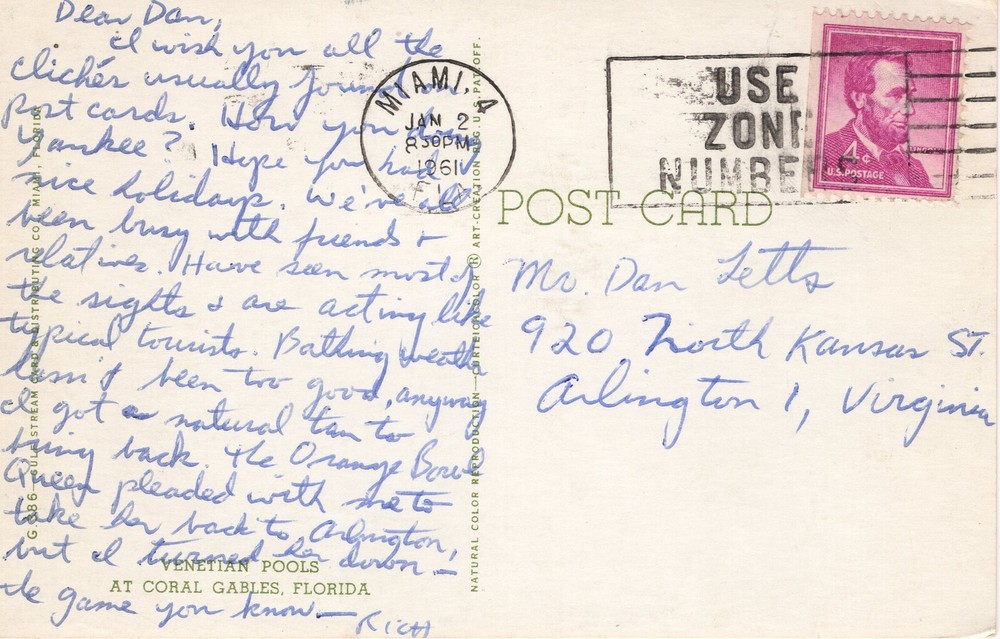 Dear Dan,
I wish you all the
clichés usually found on
post cards. How you doin
Yankee? Hope you had
nice holidays. We've all
been busy with friends &
relatives. Have seen most of
the sights & are acting like
typical tourists. Bathing weather
hasn't been too good, anyway
I got a natural tan to
bring back. The Orange Bowl
Queen pleaded with me to
take her back to Arlington,
but I turned her down —
the game you know —
Rich
VENETIAN POOLS
AT CORAL GABLES, FLORIDA
G.S86 GULF STREAM CARD & DISTRIBUTING CO., MIAMI, FLORIDA
NATURAL COLOR REPRODUCTION—CRITEICALCOLOR ® ART-CREATION REG. U.S. PAT. OFF.
MIAMI,
JAN 2
8 30 PM
1961
USE
ZONE
NUMBERS
4¢
U.S. POSTAGE
POST CARD
Mr. Dan Letts
920 North Kansas St.
Arlington 1, Virginia